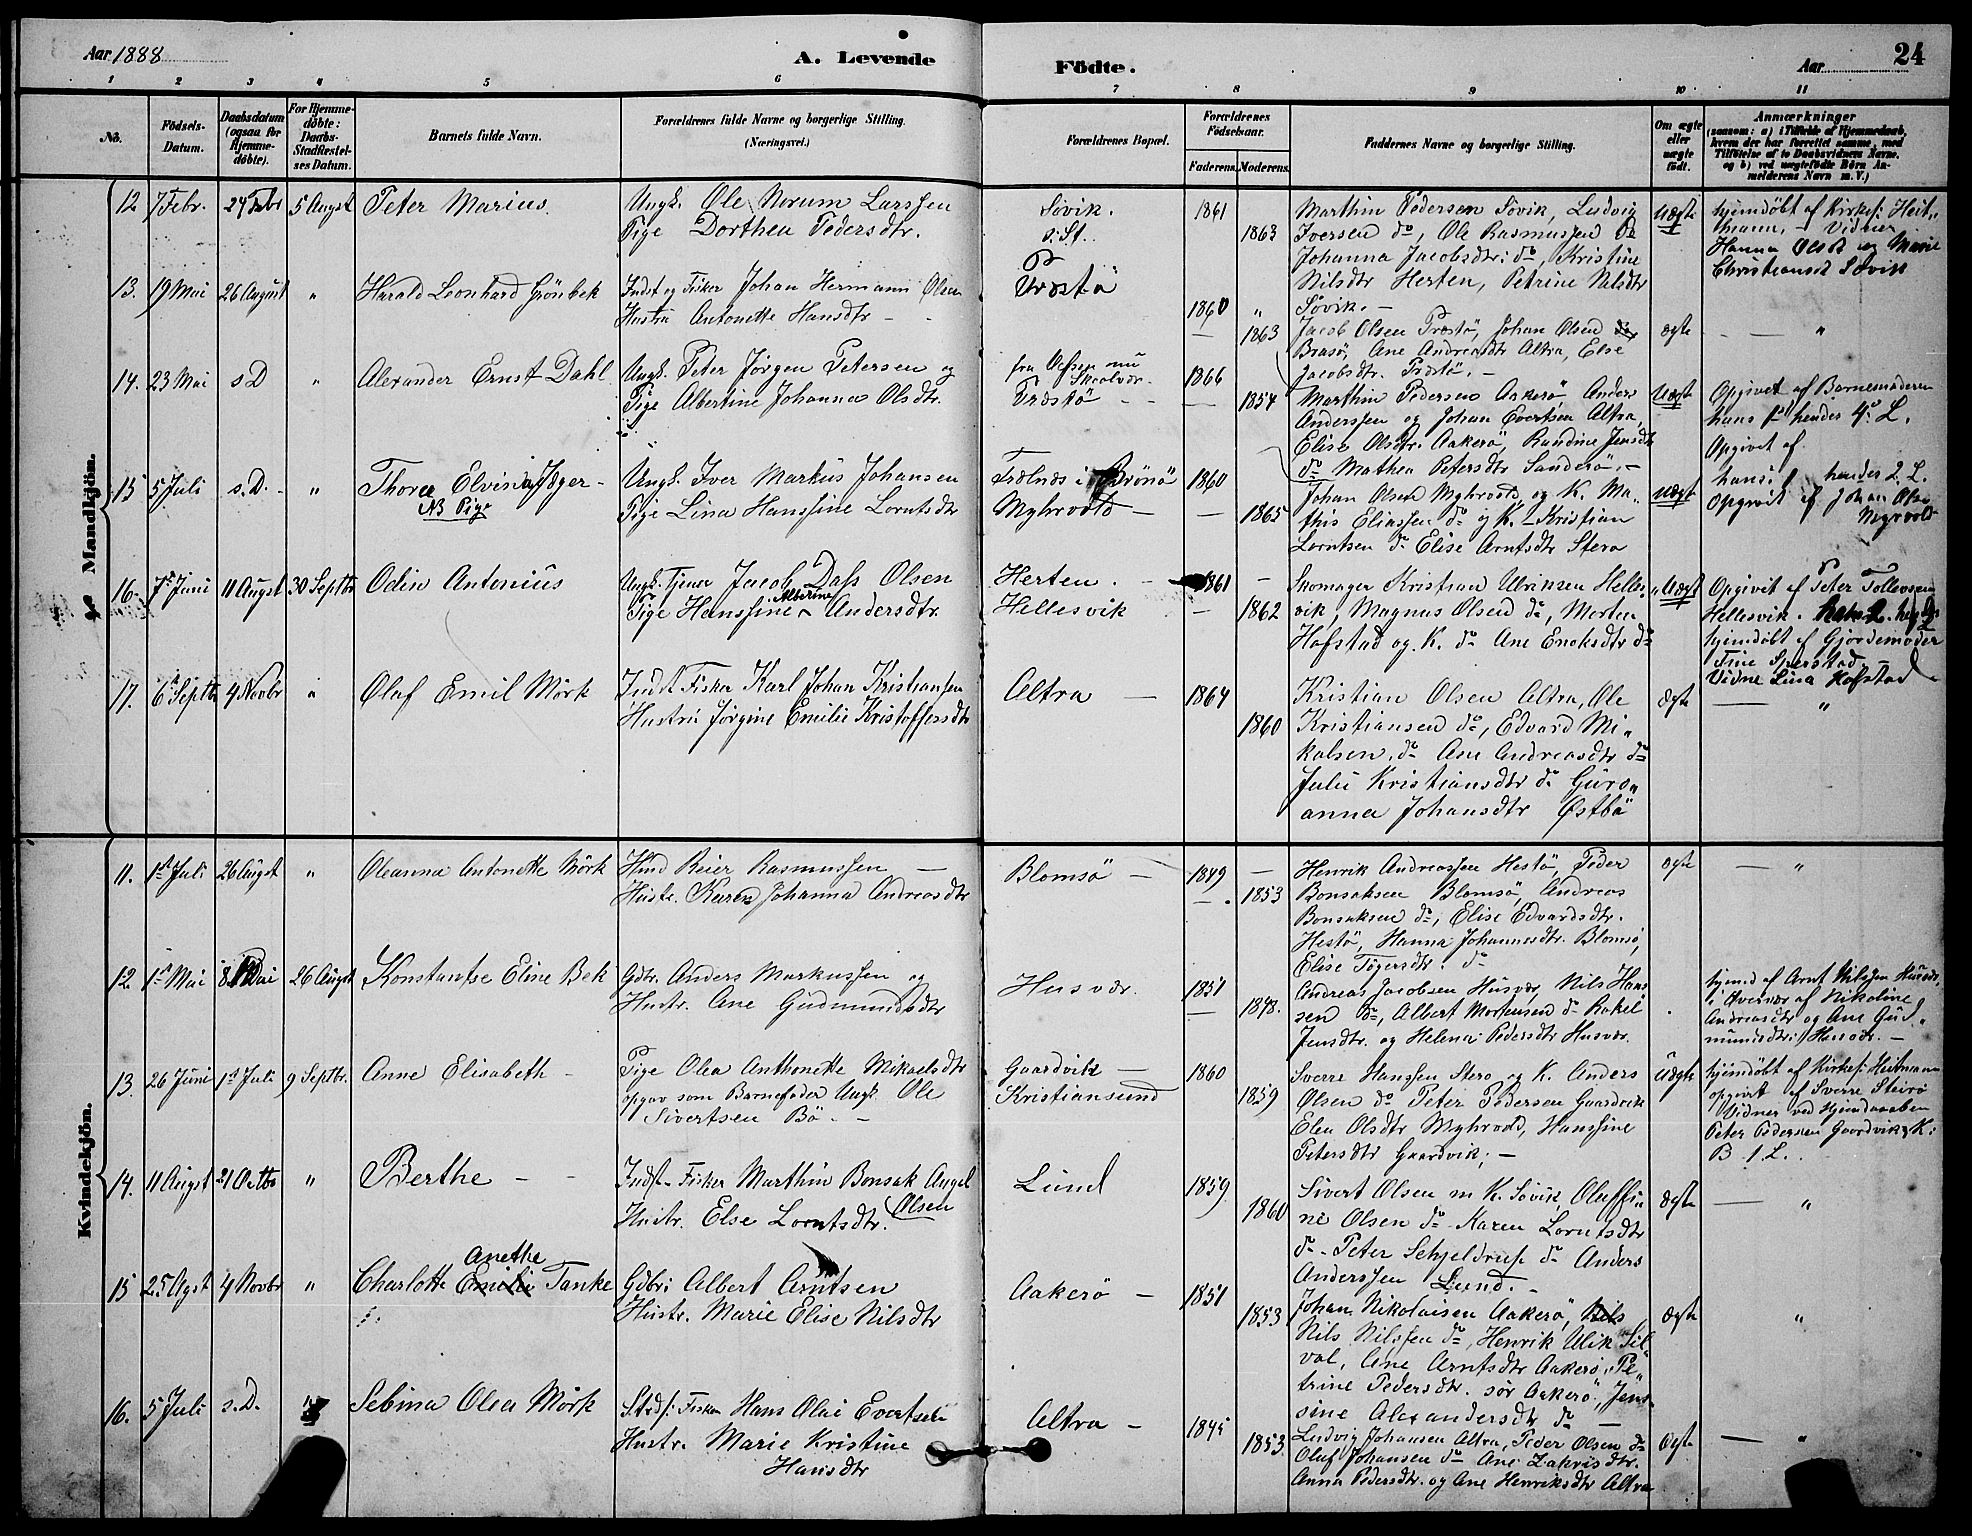 Aar 1888
A. Levende
Födte.
Aar
24
1 2 3 4 5 6 7 8 9 10 11
No.
Födsels-
Datum.
Daabsdatum
(ogsaa for
Hjemme-
döbte).
For Hjemme-
döbte:
Daabs-
Stadfæstel-
ses Datum.
Barnets fulde Navn.
Forældrenes fulde Navne og borgerlige Stilling.
(Næringsvei.)
Forældrenes Bopæl.
Forældrenes
Födselsaar.
Faderens.
Moderens.
Faddernes Navne og borgerlige Stilling.
Om ægte
eller
uægte
födt.
Anmærkninger
(saasom: a) i Tilfælde af Hjemmedaab,
hvem der har forrettet samme, med
Tilföielse af to Daabsvidners Navne,
og b) ved uægtefödte Börn An-
melderens Navn m.V.)
Mandkjön.
12 7 Febr. 24 Febr 5 Augst Peter Marius.
Ungk. Ole Norum Larssen
Pige Dorthea Pedersdtr.
Søvik.
s. St.
1861
1863
Marthin Pedersen Søvik, Ludvig
Iversen do, Ole Rasmussen do
Johanna Jacobsdtr: do, Kristine
Nilsdtr Herten, Petrine Nilsdtr
Søvik. -
Uægte
hjemdøbt af Kirkes: Heit-
mann, - Vidner
Hanna Olsdt og Marie
Christiansd Søvik
13. 19 Mai 26 August " Harald Leonhard Grönbek
Indst og Fisker Johan Hermann Olsen
Hustru Antonette Hansdtr -
Præstö
1860
1863
Jacob Olsen Præstö, Johan Olsen
Brasö, Ane Andreasdtr Altra, Else
Jacobsdtr. Præstö. -
ægte
- "
14. 23 Mai s D " Alexander Ernst Dahl
Ungk. Peter Jørgen Petersen og
Pige Albertine Johanna Olsdtr.
fra Vefsen nu
Skaalvær.
Præstö
1866
1854
Marthin Pedersen Aakerö, Anders
Anderssen og Johan Evertsen Altra,
Elise Olsdtr. Aakerö, Randine Jensdtr
do Mathea Petersdtr Sanderö. -
Uægt
Opgivet af Barnemoderen
hans 1ste hendes 4de L.
15 5 Juli s. D. " Thora Elvine Jæger -
NB Pige
Ungk. Iver Markus Johansen
Pige Lina Hanssine Lorntsdtr
Trælnes i Brönö
Myhrvold -
1860
1865
Johan Olsen Myhrvold og K. Ma-
this Eliassen do og K. - Kristian
Lorntsen do Elise Arntsdtr Stero
Uægt
Opgivet af
hans 1 hendes 2 L.
Opgivet af Johan Olsen
Myrvold
16. 7de Juni 11 Augst 30 Septbr Odin Antonius
Ungk. Tjener Jacob Dass Olsen
Pige Hanssine Albertine Andersdtr.
Herten. -
Hellesvik
1861
1862
Skomager Kristian Ulriksen Helles-
vik, Magnus Olsen do, Morten
Hofstad og K. do Ane Enoksdtr do
Uægt
Opgivet af Peter Tollevsen
Hellesvik.
hjemdöbt af Gjordemoder
Tine Sperstad
Vidne Lina Hofstad
17. 6te Septbr 4 Novbr " Olaf Emil Mörk
Indst Fisker Karl Johan Kristiansen
Hustru Jørgine Emilie Kristoffersdtr
Altra -
1864
1860
Kristian Olsen Altra, Ole
Kristiansen do, Edvard Mi-
kalsen, do Ane Andreasdtr do
Julie Kristiansdtr do Guro-
anna Johansdtr Østbö
ægte
- "
Kvindekjön.
11. 1st Juli 26 Augst " Oleanna Antonette Mörk
Hmd Reier Rasmussen -
Hustr. Karen Johanna Andreasdtr
Blomsö -
1849
1853
Henrik Andreassen Hestö, Peder
Bonsaksen Blomsö, Andreas
Bonsaksen do, Elise Edvardsdtr.
Hestö, Hanna Johannesdtr. Blomsö,
Elise Tögersdtr. do
ægte
- "
12 1st Mai 8 Mai 26 Augst Konstantse Eline Bek
Gdbr. Anders Markussen og
Hustr. Ane Gudmundsdtr
Husvær.
1851
1848.
Andreas Jacobsen Husvær, Nils Hans-
sen do, Albert Mortensen do Rakel
Jensdtr. og Helena Pedersdtr Husvær.
hjemd af Arnt Nilssen Husvær,
i Overvær af Nikoline
Andreasdtr og Ane Gud-
mundsdtr: Husvær. -
13. 26 Juni 1st Juli 9 Septbr. Anne Elisabeth -
Pige Olea Anthonette Mikaelsdtr
opgav som Barnefader Ungk. Ole
Sivertsen Bö. -
Gaardvik -
Kristiansund
1860
1859
Sverre Hanssen Stero og K. Anders
Olsen do Peter Pedersen Gaardvik
Elen Olsdtr Myhrvold, Hanssine
Petersdtr Gaardvik; -
Uægte
hjemdöbt af Kirkes: Heitmann
opgivet af Sverre Steirö
Vidner ved Hjemdaaben
Peter Pedersen Gaardvik & K:
B 1 L.
14. 11 Augst 21 Octbr " Berthe -
Indst- Fisker Marthin Bonsak Angel
Olsen
Hustr. Else Lorntsdtr.
Lund
1859
1860
Sivert Olsen m K. Søvik, Oluffi-
ne Olsen do. Karen Lorntsdtr
do. Peter Schjeldrup do Anders
Anderssen Lund. -
ægte
- "
15 25 Agst 4 Novbr " Charlotte Emilie Anethe Tanke
Gdbr: Albert Arntsen
Hustr. Marie Elise Nilsdtr
Aakerö -
1851
1853
Johan Nikolaisen Aakerö, Nils
Nils Nilssen do, Henrik Ulik Sil-
val, Ane Arntsdtr Aakerö, Pe-
trine Pedersdtr. sör Aakerö. Jens-
sine Alexandersdtr do -
ægte
"
16. 5 Juli s. D. " Sebina Olea Mörk
Strds: Fisker Hans Olai Evertsen
Hustr. Marie Kristine
Hansdtr
Altra -
1845
1853
Ludvig Johansen Altra, Peder Olsen do
Oluf Johansen do Ane Zakrisdtr.
Anna Pedersdtr. og Ane Henriksdtr Altra
ægte
- "